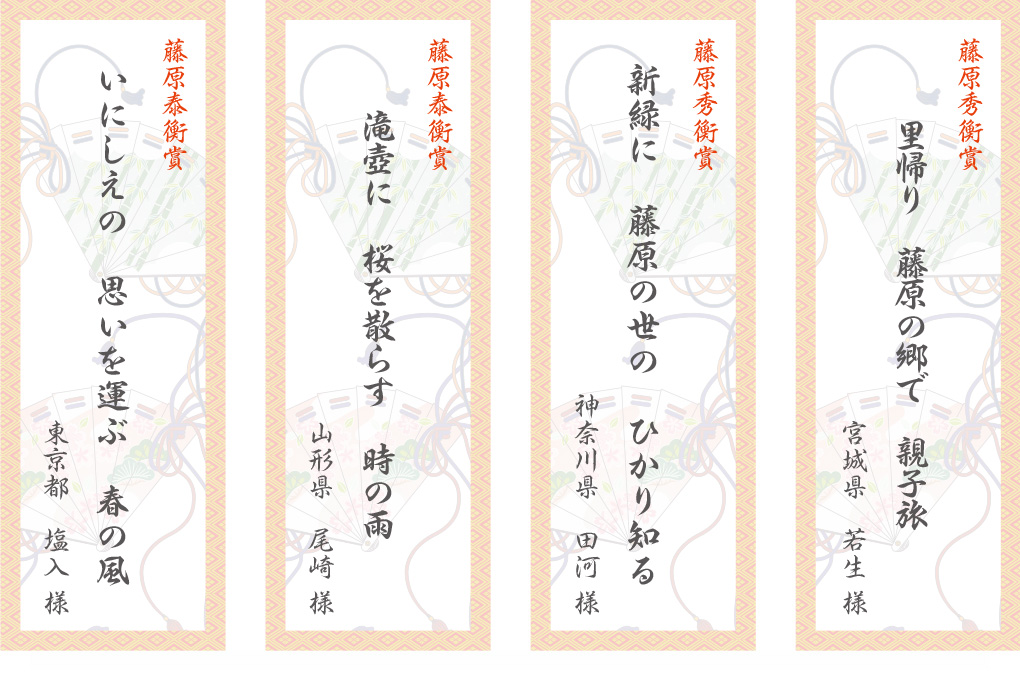 藤原秀衡賞
里帰り　藤原の郷で　親子旅
宮城県　若生 様
藤原秀衡賞
新緑に　藤原の世の　ひかり知る
神奈川県　田河 様
藤原泰衡賞
滝壺に　桜を散らす　時の雨
山形県　尾崎 様
藤原泰衡賞
いにしえの　思いを運ぶ　春の風
東京都　塩入 様